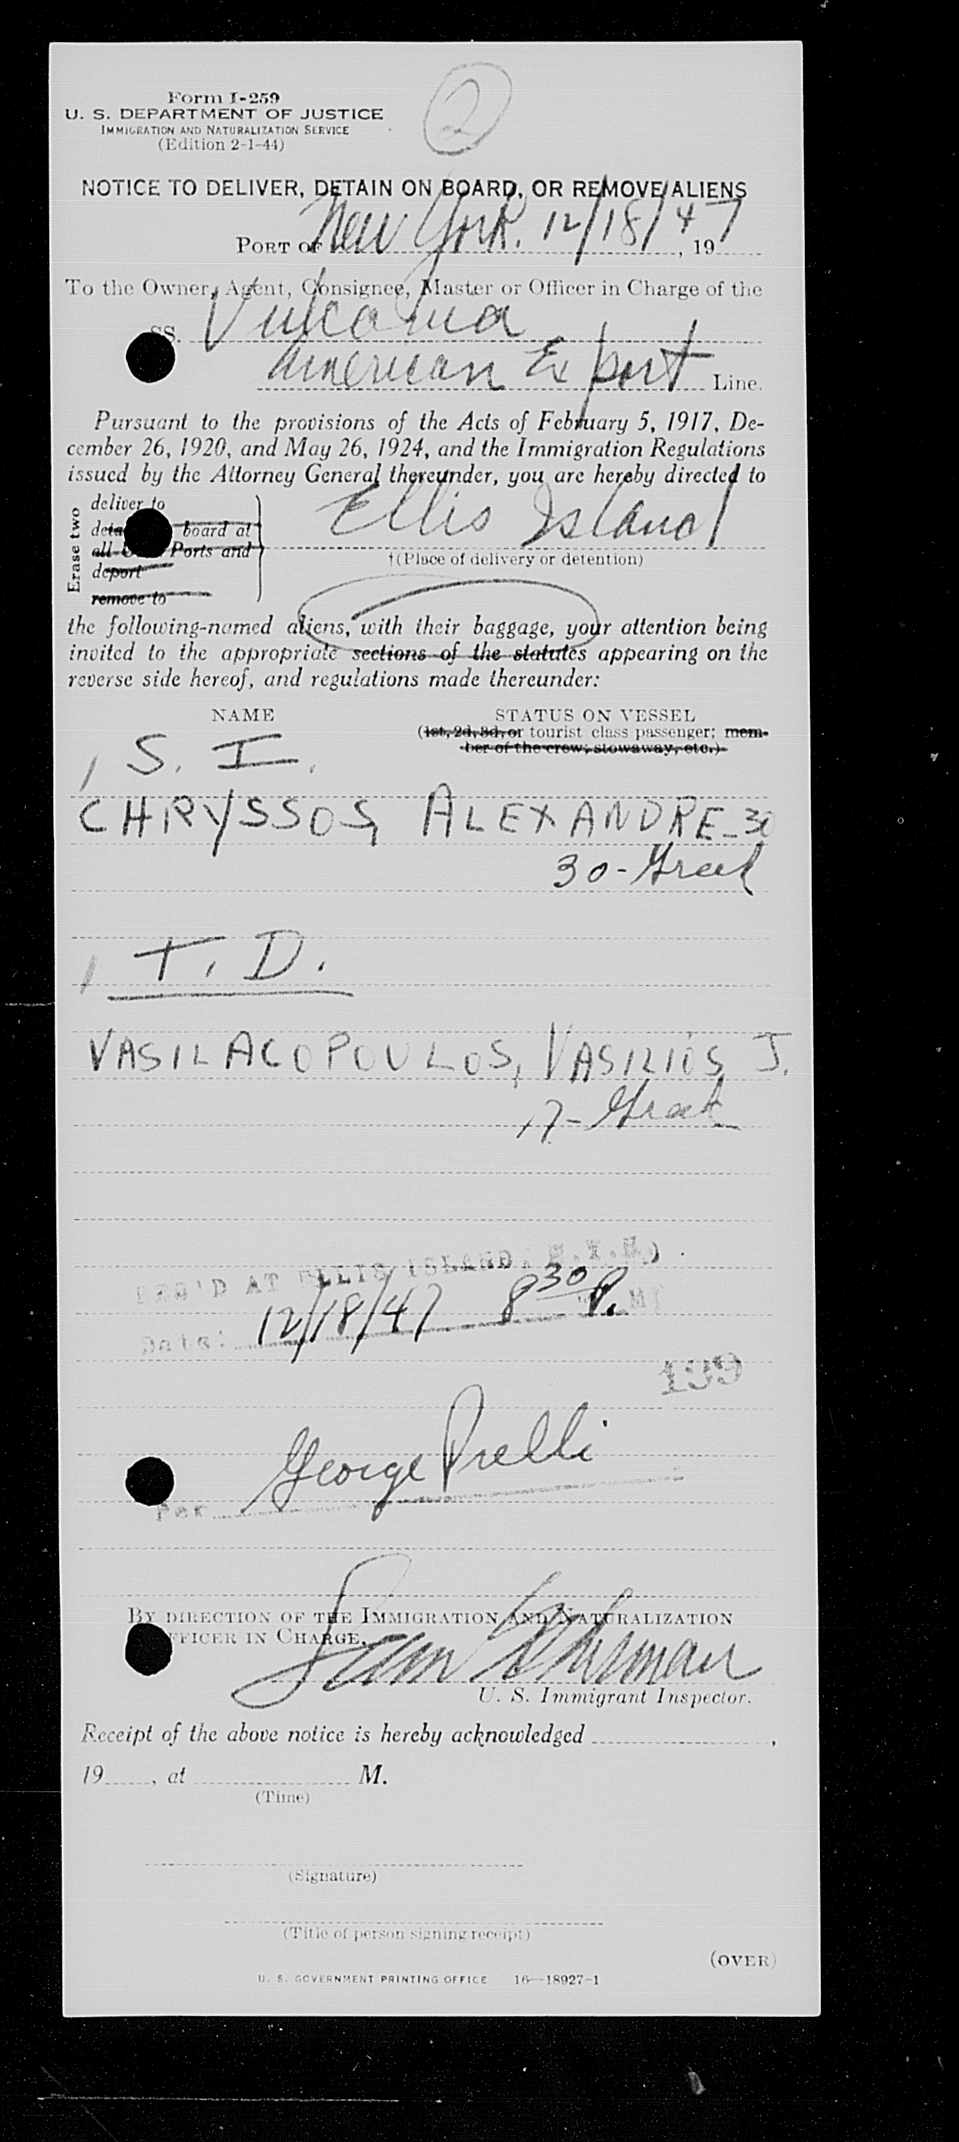 Form I-259
U. S. DEPARTMENT OF JUSTICE
IMMIGRATION AND NATURALIZATION SERVICE
(Edition 2-1-44)
2
NOTICE TO DELIVER, DETAIN ON BOARD, OR REMOVE ALIENS
PORT OF New York. 12/18/47, 19
To the Owner, Agent, Consignee, Master or Officer in Charge of the
SS. Vulcania
American Export Line.
Pursuant to the provisions of the Acts of February 5, 1917, De-
cember 26, 1920, and May 26, 1924, and the Immigration Regulations
issued by the Attorney General thereunder, you are hereby directed to
Erase two
deliver to
board at
all Ports and
deport
remove to
Ellis Island
†(Place of delivery or detention)
the following-named aliens, with their baggage, your attention being
invited to the appropriate sections of the statutes appearing on the
reverse side hereof, and regulations made thereunder:
NAME STATUS ON VESSEL
(1st, 2d, 3d, or tourist class passenger; mem-
ber of the crew; stowaway, etc.)
1 S. I.
CHRYSSOS, ALEXANDRE - 30
30 - Greek
1 T. D.
VASILACOPOULOS, VASILIOS J.
17 - Greek
REC'D AT ELLIS ISLAND, N.Y.H.)
Date: 12/18/47 8 30 P. M
199
Per George Prelli
BY DIRECTION OF THE IMMIGRATION AND NATURALIZATION
OFFICER IN CHARGE,
U. S. Immigrant Inspector.
Receipt of the above notice is hereby acknowledged ,
19 , at M.
(Time)
(Signature)
(Title of person signing receipt)
(OVER)
U. S. GOVERNMENT PRINTING OFFICE 16—18927-1